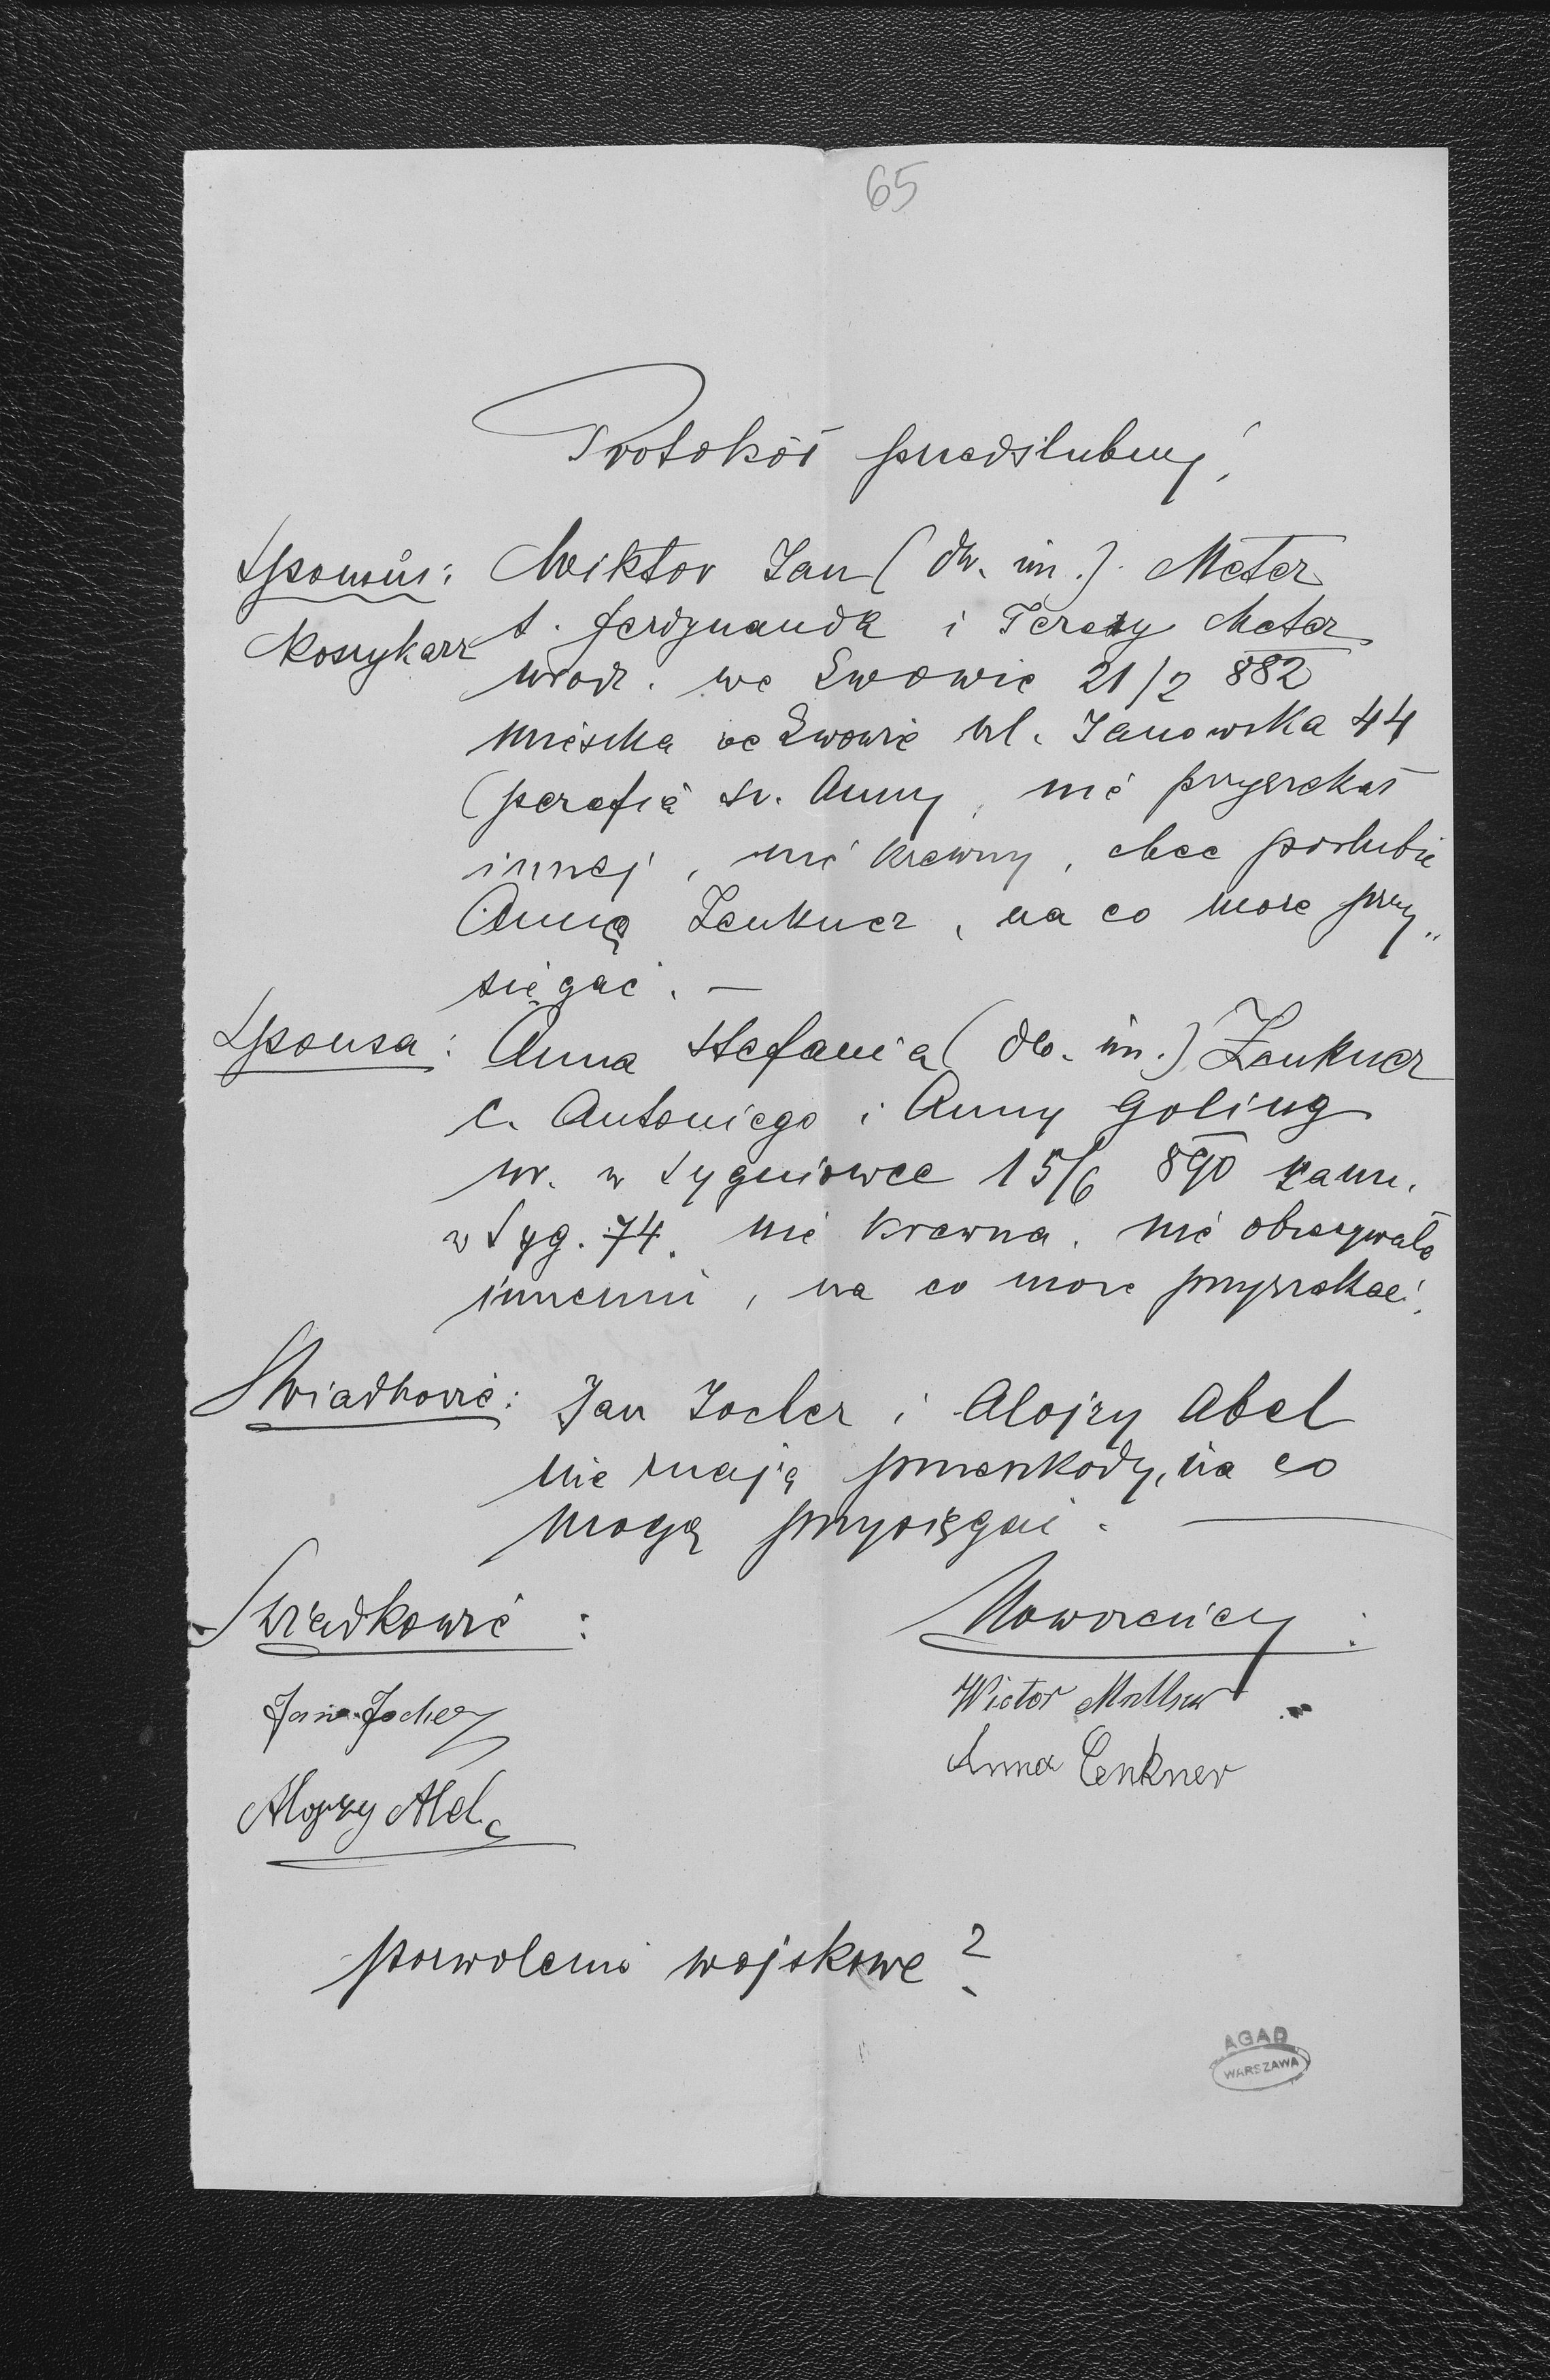 65
Protokół przedślubny,
Sponsus: Wiktor Jan (dw. im.) Meter
Koszykarz s. Ferdynanda i Terezy Meter
urodz. we Lwowie 21/2 882
mieszka we Lwowie ul. Janowska 44
(parafia św. Anny, nie przyrzekał
innej, nie krewny, chce poślubić
Annę Lenkner, na co może przy„
sięgać. —
Sponsa: Anna Stefania (dw. im.) Lenkner
c. Antoniego i Anny Goling
ur. w Sygniówce 15/6 890 zam.
w Syg. 74. nie krewna. nie obiecywała
innemu, na co może przyrzekać.
Świadkowie: Jan Jocher i Alojzy Abel
nie znają przeszkody, na co
mogą przysięgać. —
Świadkowie : Nowożeńcy :
Jan Jocher Wictor
Alojzy Abel Anna Lenkner
pozwolenie wojskowe?
AGAD
WARSZAWA